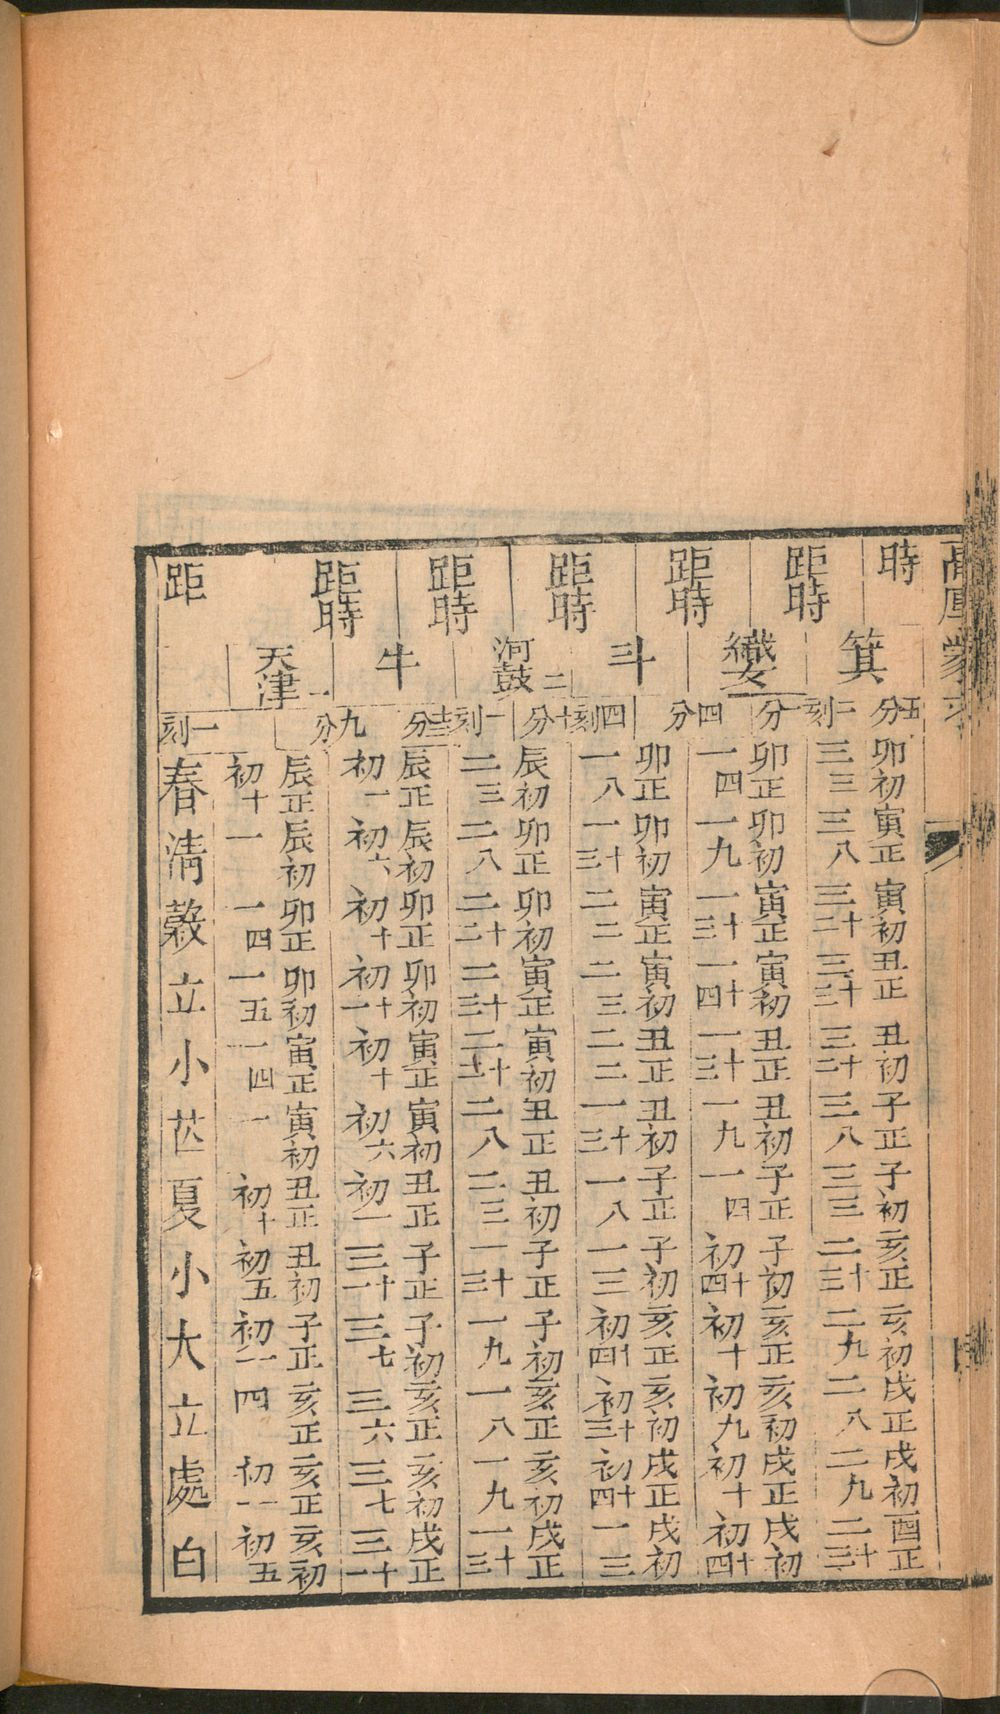 高厚蒙求
時 五分
箕
卯初 寅正 寅初 丑正 丑初 子正 子初 亥正 亥初 戌正 戌初 酉正
三三 三八 三十二 三十三 三十二 三八 三三 二十三 二九 二八 二九 二十三
距時 二刻一分
織女一
卯正 卯初 寅正 寅初 丑正 丑初 子正 子初 亥正 亥初 戌正 戌初
一四 一九 一十三 一十四 一十三 一九 一四 初十四 初十 初九 初十 初十四
距時 四分
斗
卯正 卯初 寅正 寅初 丑正 丑初 子正 子初 亥正 亥初 戌正 戌初
一八 一十三 二二 二三 二二 一十三 一八 一三 初十四 初十三 初十四 一三
距時 四刻十分
河鼓二
辰初 卯正 卯初 寅正 寅初 丑正 丑初 子正 子初 亥正 亥初 戌正
二三 二八 二十二 二十三 二十二 二八 二三 一十三 一九 一八 一九 一十三
距時 一刻十三分
牛
辰正 辰初 卯正 卯初 寅正 寅初 丑正 子正 子初 亥正 亥初 戌正
初一 初六 初十 初十一 初十 初六 初一 三十一 三七 三六 三七 三十一
距時 九分
天津一
辰正 辰初 卯正 卯初 寅正 寅初 丑正 丑初 子正 亥正 亥正 亥初
初十 一 一四 一五 一四 一 初十 初五 初一 四 初一 初五
距 一刻
春 清 穀 立 小 芒 夏 小 大 立 處 白